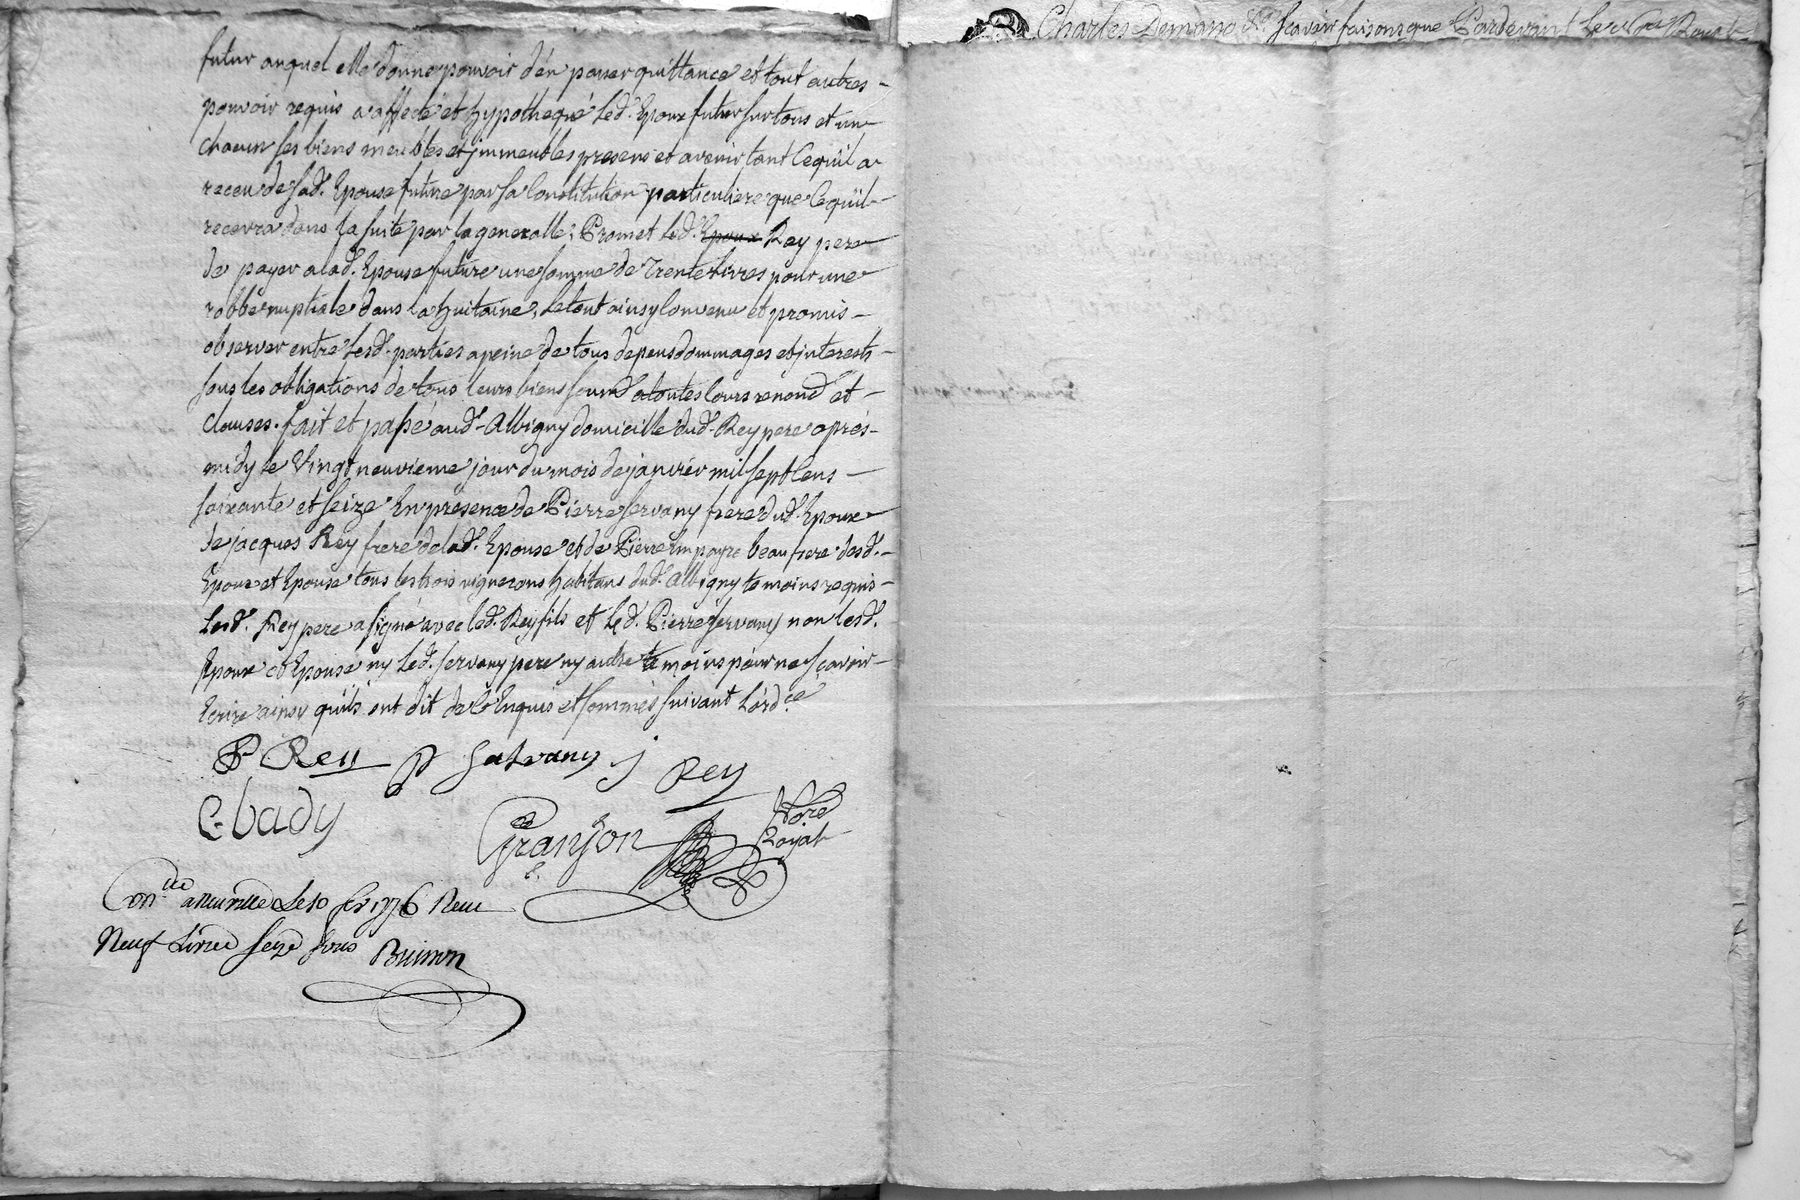 futur auquel elle donne pouvoir d'en passer quittance et tout autres
pouvoir requis a affecté et hypothequé led. Epoux futur sur tous et un
chacun ses biens meubles et immeubles presens et avenir tant ce qu'il a
receu de lad. Epouse future par sa Constitution particuliere que ce qu'il
recevra dans la suite par la generalle; Promet led. Epoux Rey pere
de payer a lad. Epouse future une somme de Trente Livres pour une
robbe nuptiale dans la huitaine, Le tout ainsy convenu et promis
observer entre lesd. parties a peine de tous depens dommages et interests
sous les obligations de tous leurs biens a toutes cours renond et
clauses. fait et passé aud. Albigny domicille dud. Rey pere aprés
midy le Vingt neuvieme jour du mois de janvier mil sept Cens
soixante et seize En presence de Pierre Servany frere dud. Epoux
de jacques Rey frere de lad. Epouse et de Pierre beau frere desd.
Epoux et Epouse tous les trois vignerons habitans dud. Albigny temoins requis
Led. Rey pere a signé avec led. Rey fils et led. Pierre Servany non lesd.
Epoux et Epouse ny led. Servany pere ny autre temoins pour ne sçavoir
Ecrire ainsy qu'ils ont dit de ce Enquis et sommés suivant L'ordce
P Rey P Salvany j Rey
C. bady Granjon Nore
Royal
Conlle a Neuville Le 10 fev 1776 Reçu
Neuf Livres seize sous Buisson
Charles Demano &a sçavoir faisons que Pardevant Le Nore Royal